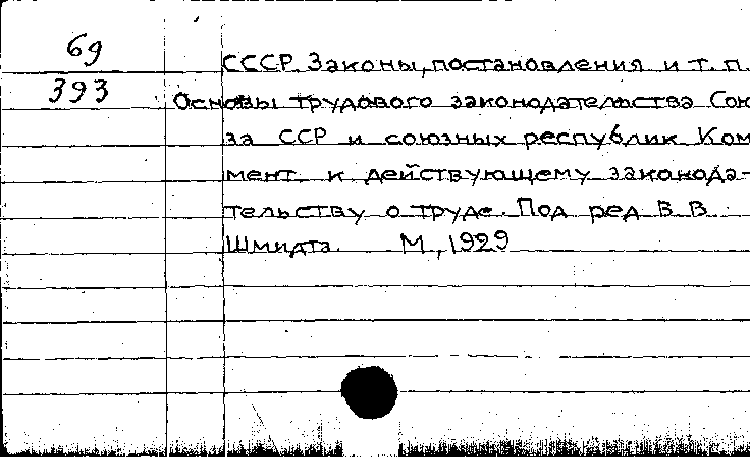 69
393
СССР. Законы, постановления и т. п.
Основы трудового законодательства Сою
за ССР и союзных республик Ком
мент. к действующему законода-
тельству о труде. Под ред В. В.
Шмидта. М., 1929